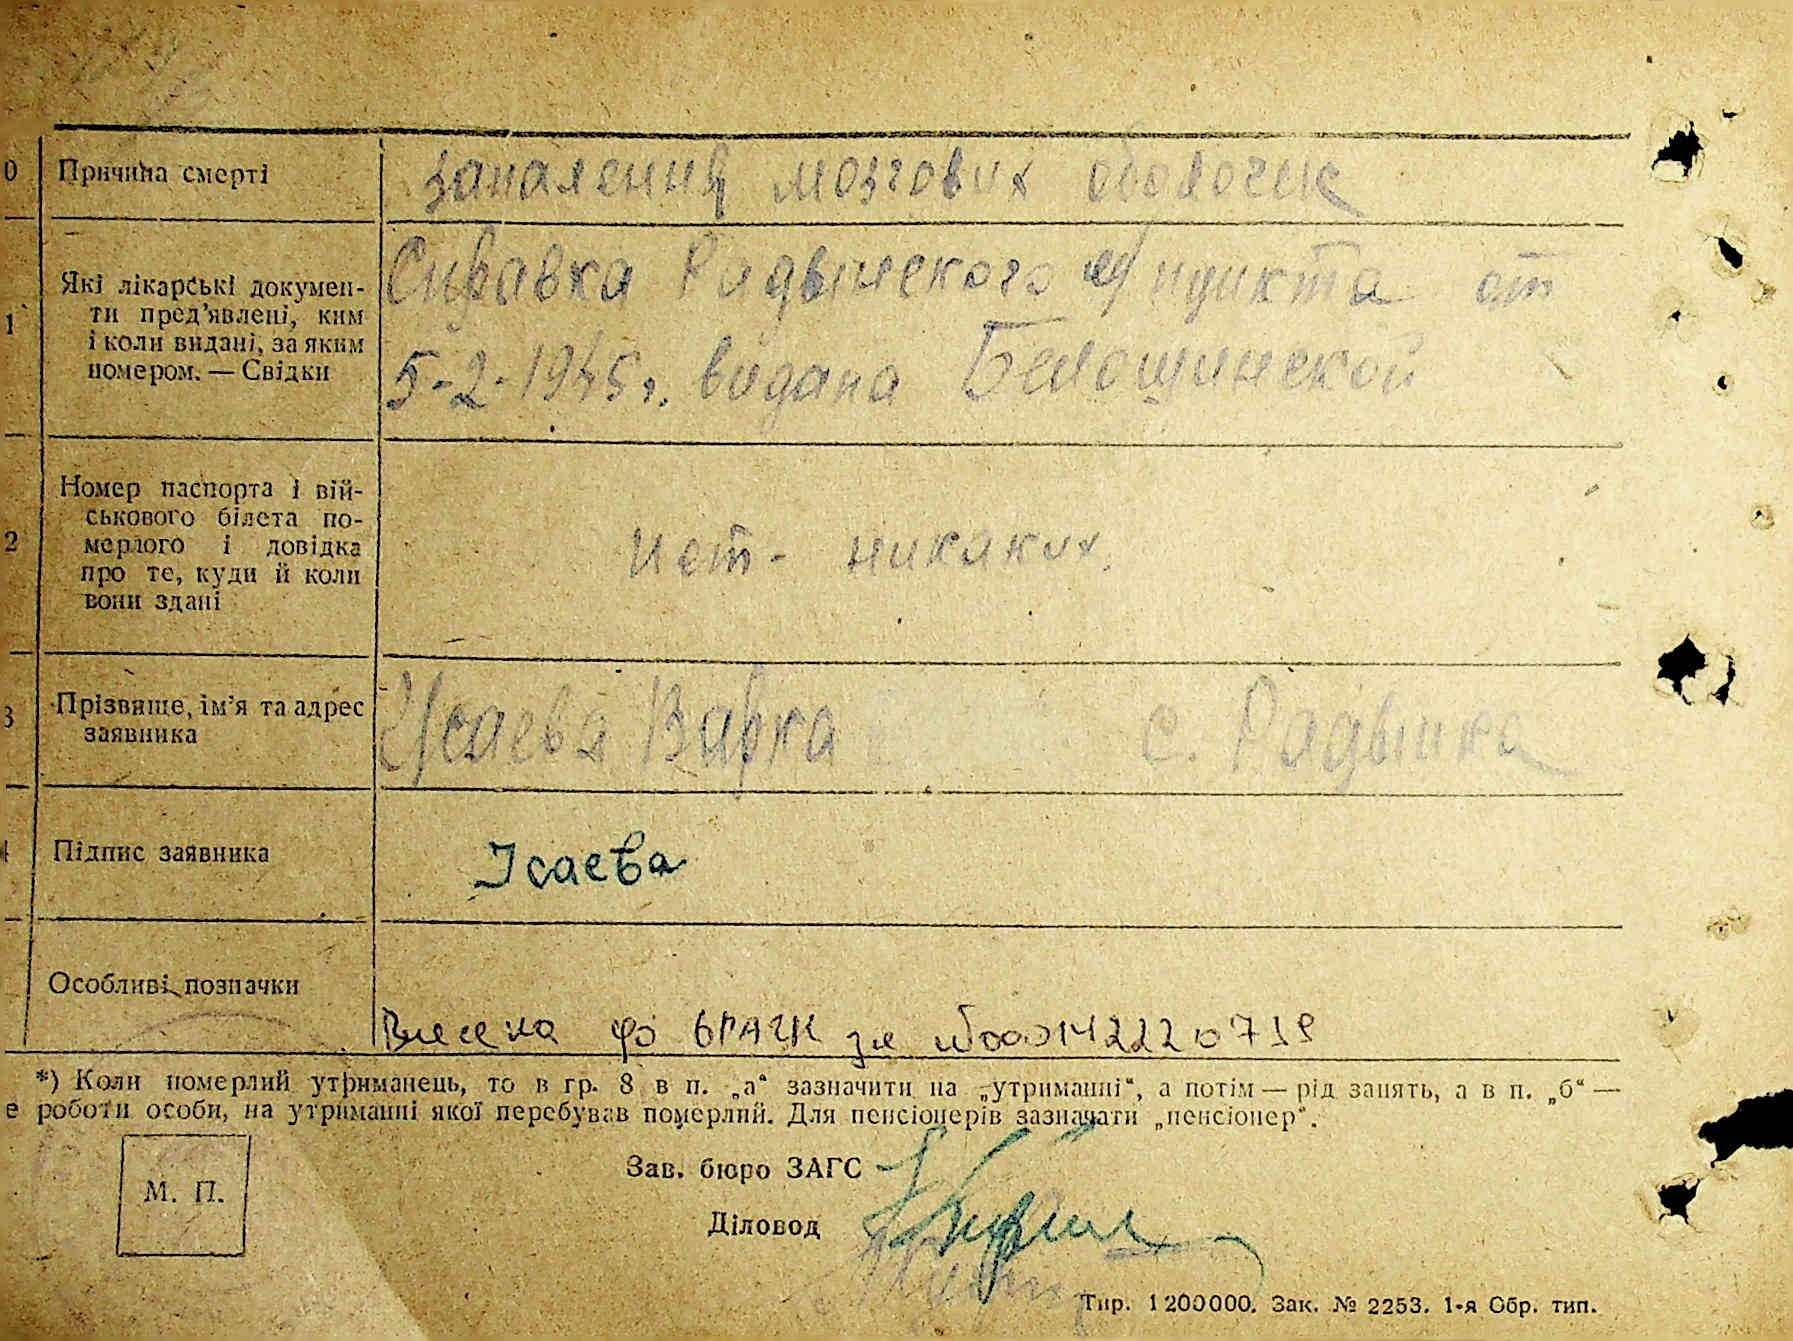 0 Причина смерті запалення мозгових оболочек
1 Які лікарські докумен-
ти пред'явлені, ким
і коли видані, за яким
номером. — Свідки
Справка Радвинского пункта от
5-2-1945г. видана Белошинской
2 Номер паспорта і вій-
ськового білета по-
мерлого і довідка
про те, куди й коли
вони здані
Нет - никаких.
3 Прізвище, ім'я та адрес
заявника
Исаева Варка с. Радвинка
4 Підпис заявника Ісаєва
Особливі позначки
Внесена до ДРАЦС за №00014222073
*) Коли померлий утриманець, то в гр. 8 в п. „а“ зазначити на „утриманні“, а потім — рід занять, а в п. „б“ —
е роботи особи, на утриманні якої перебував померлий. Для пенсіонерів зазначати „пенсіонер“.
Зав. бюро ЗАГС
М. П.
Діловод
Тир. 1200000. Зак. № 2253. 1-я Обр. тип.